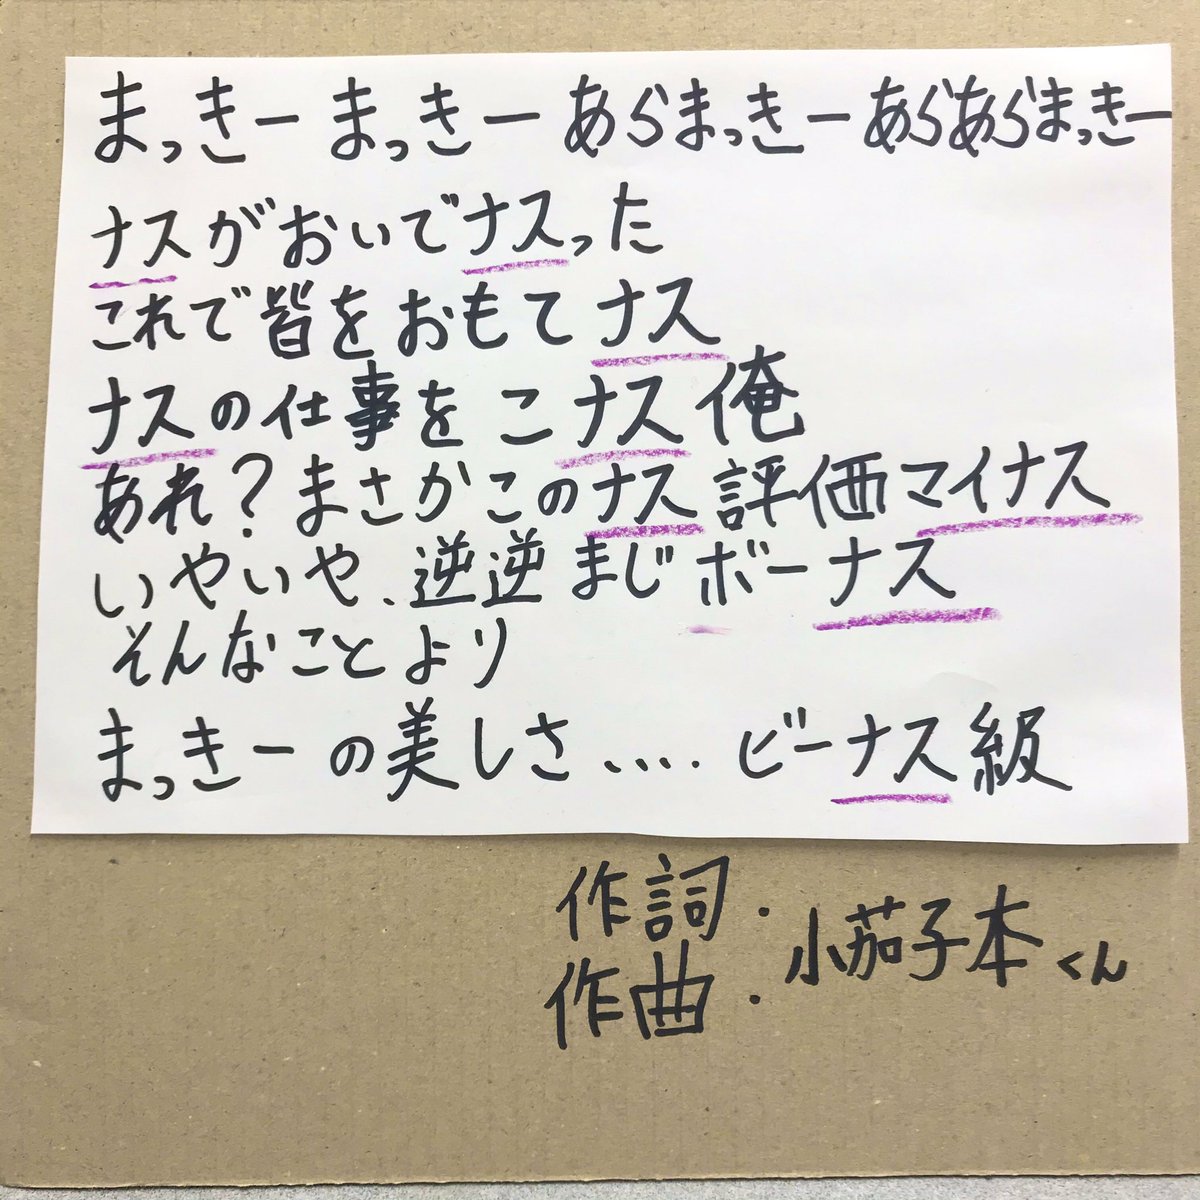 まっきー まっきー あらまっきー あらあらまっきー
ナスがおいでナスった
これで皆をおもてナス
ナスの仕事をこナス俺
あれ?まさかこのナス評価マイナス
いやいや、逆逆まじボーナス
そんなことより
まっきーの美しさ‥‥ビーナス級
作詞・
作曲・小茄子本くん